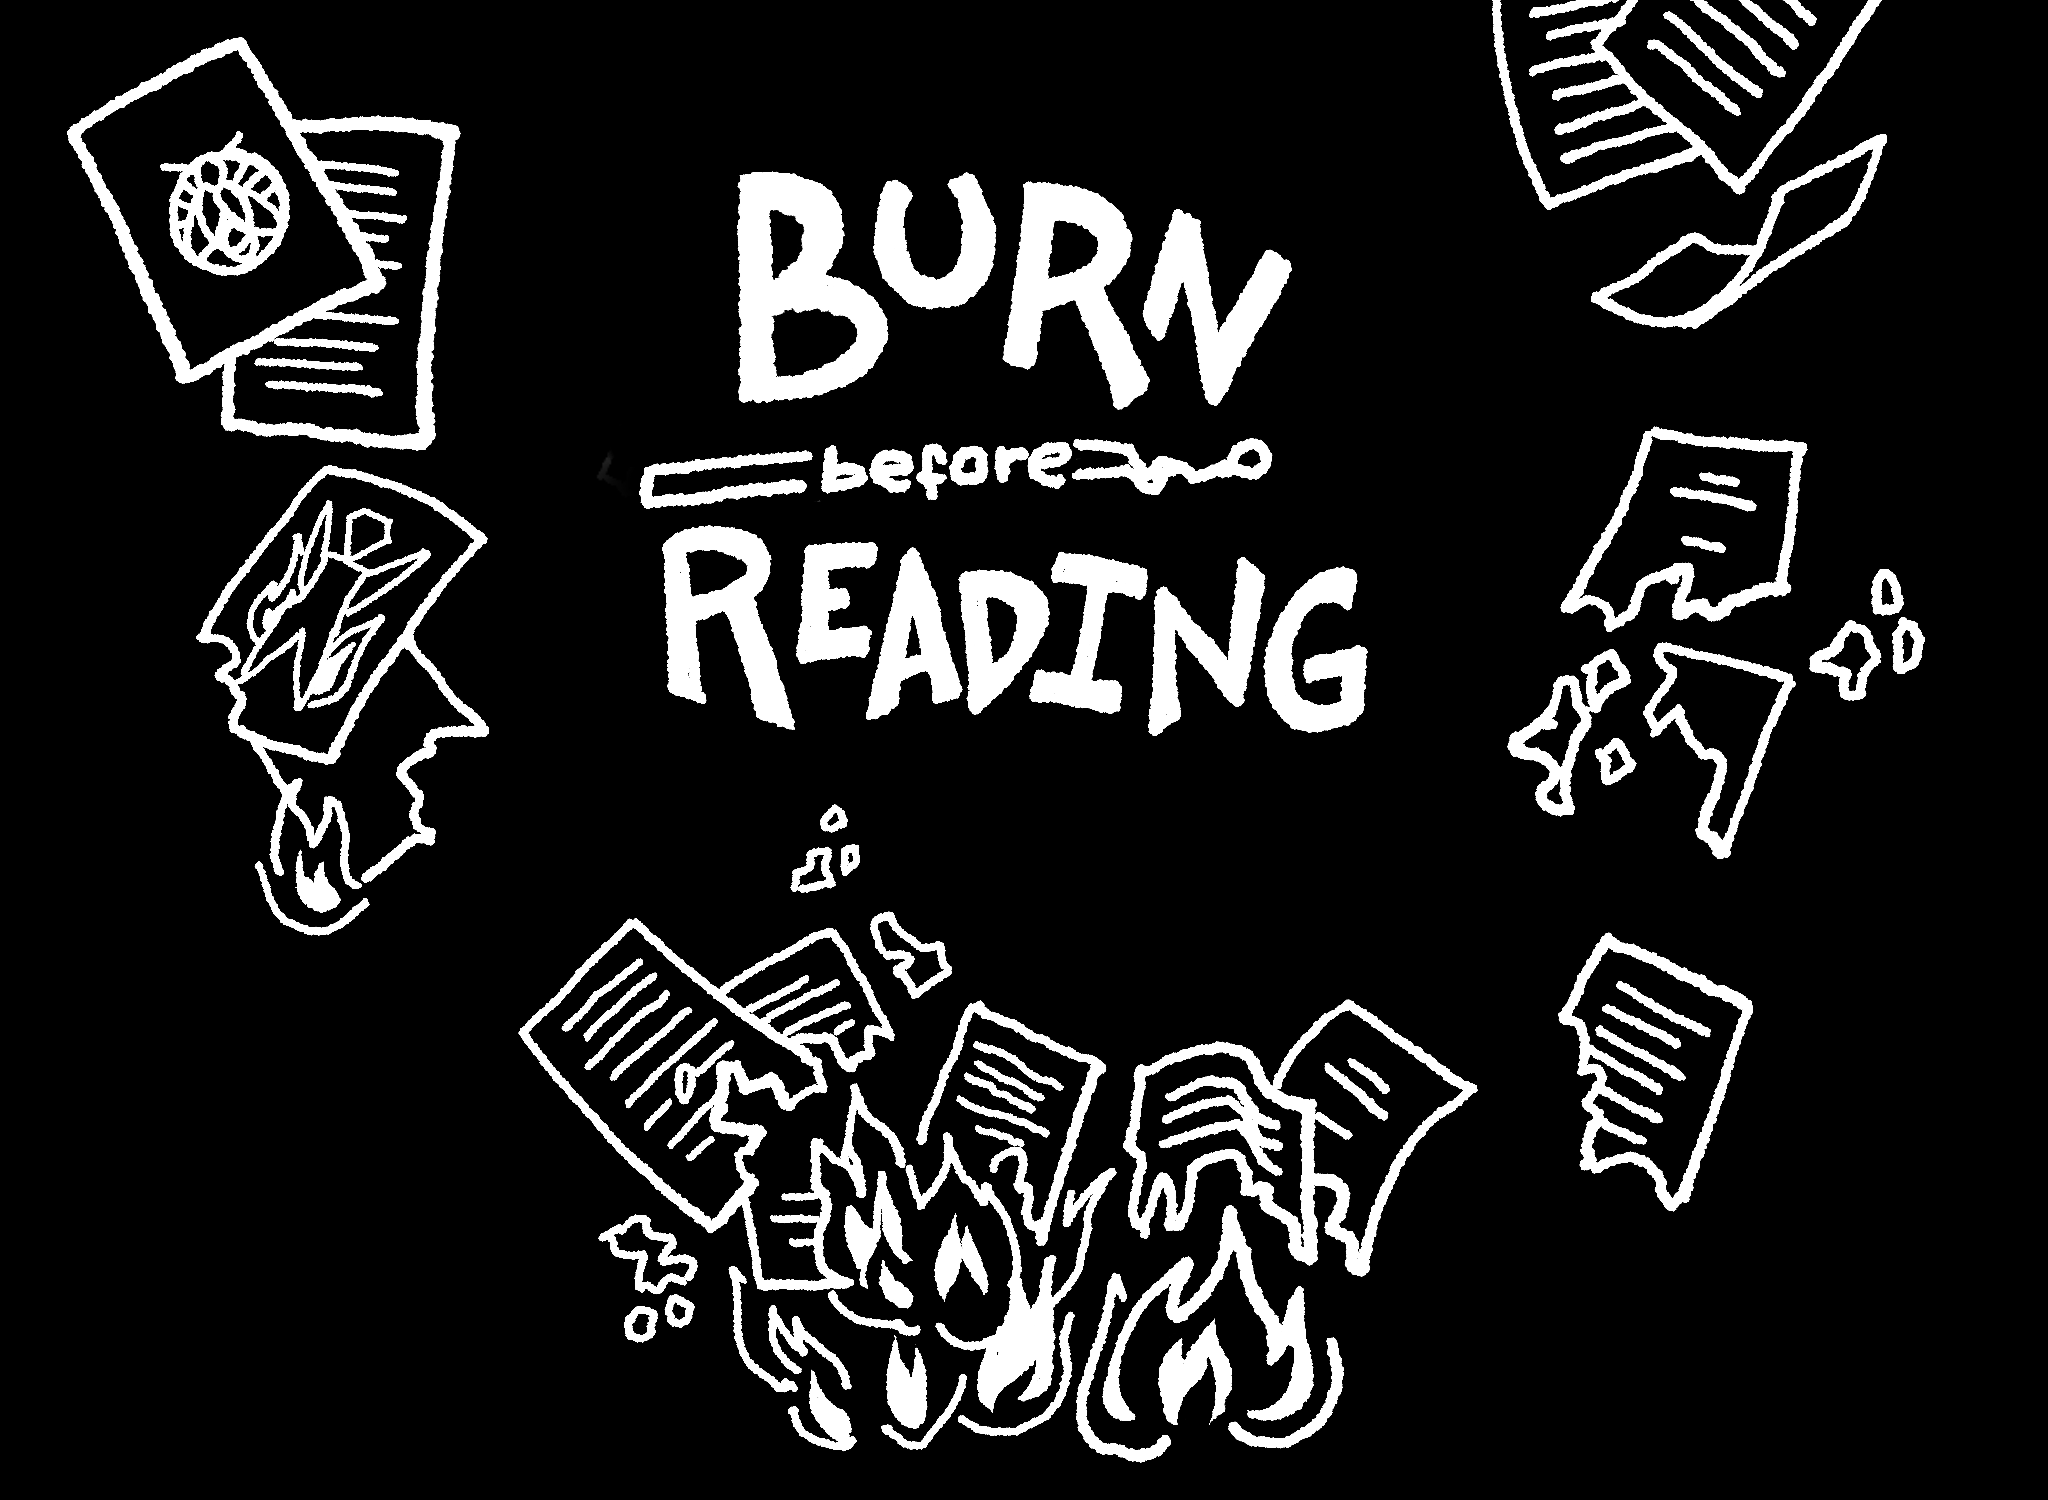 BURN
before
READING